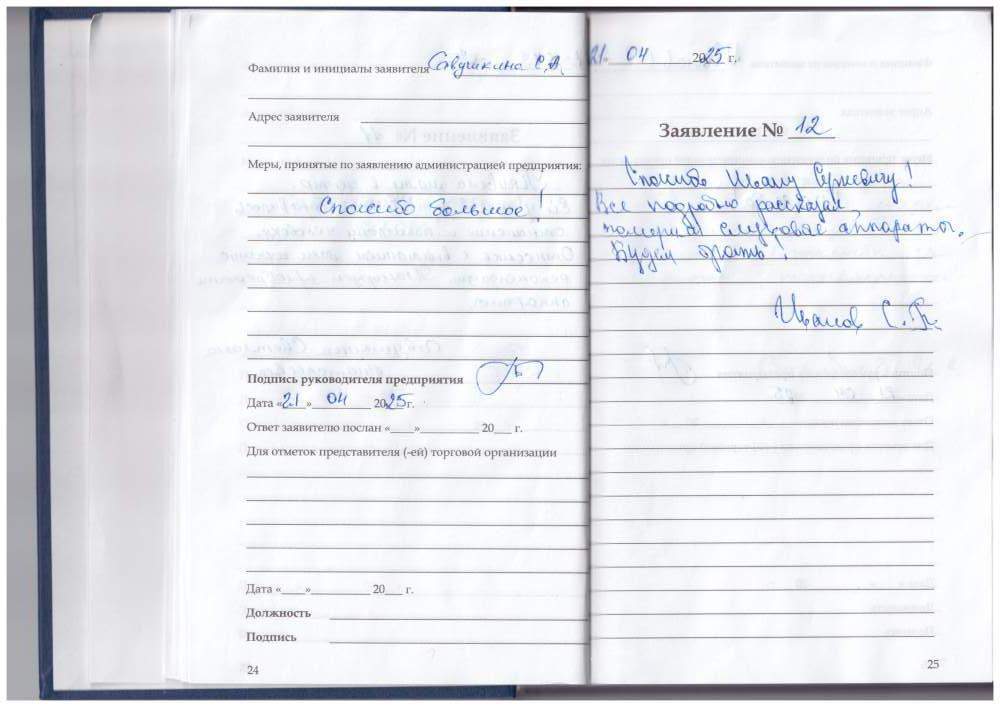 Фамилия и инициалы заявителя Савушкина С.В.
Адрес заявителя
Меры, принятые по заявлению администрацией предприятия:
Спасибо большое!
Подпись руководителя предприятия
Дата «21» 04 2025 г.
Ответ заявителю послан «____» __________ 20___ г.
Для отметок представителя (-ей) торговой организации
Дата «____» __________ 20___ г.
Должность
Подпись
24
21 04 2025 г.
Заявление № 12
Спасибо Ивану Сергеевичу!
Все подробно рассказал,
померил слуховые аппараты.
Будем брать!
Иванов С.
25